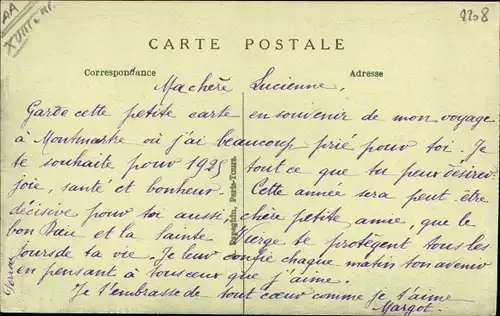 AA
XVIII e ar.
2208
CARTE POSTALE
Correspondance
Adresse
Ma chère Lucienne,
Garde cette petite carte en souvenir de mon voyage
à Montmartre où j'ai beaucoup prié pour toi. Je
te souhaite pour 1925 tout ce que tu peux désirer
joie, santé et bonheur. Cette année sera peut être
décisive pour toi aussi, chère petite amie, que le
bon Dieu et la Sainte Vierge te protègent tous les
jours de ta vie. Je leur confie chaque matin ton avenir
en pensant à tous ceux que j'aime.
Je t'embrasse de tout cœur comme je t'aime
Margot.
Rapeghin, Paris-Tours.